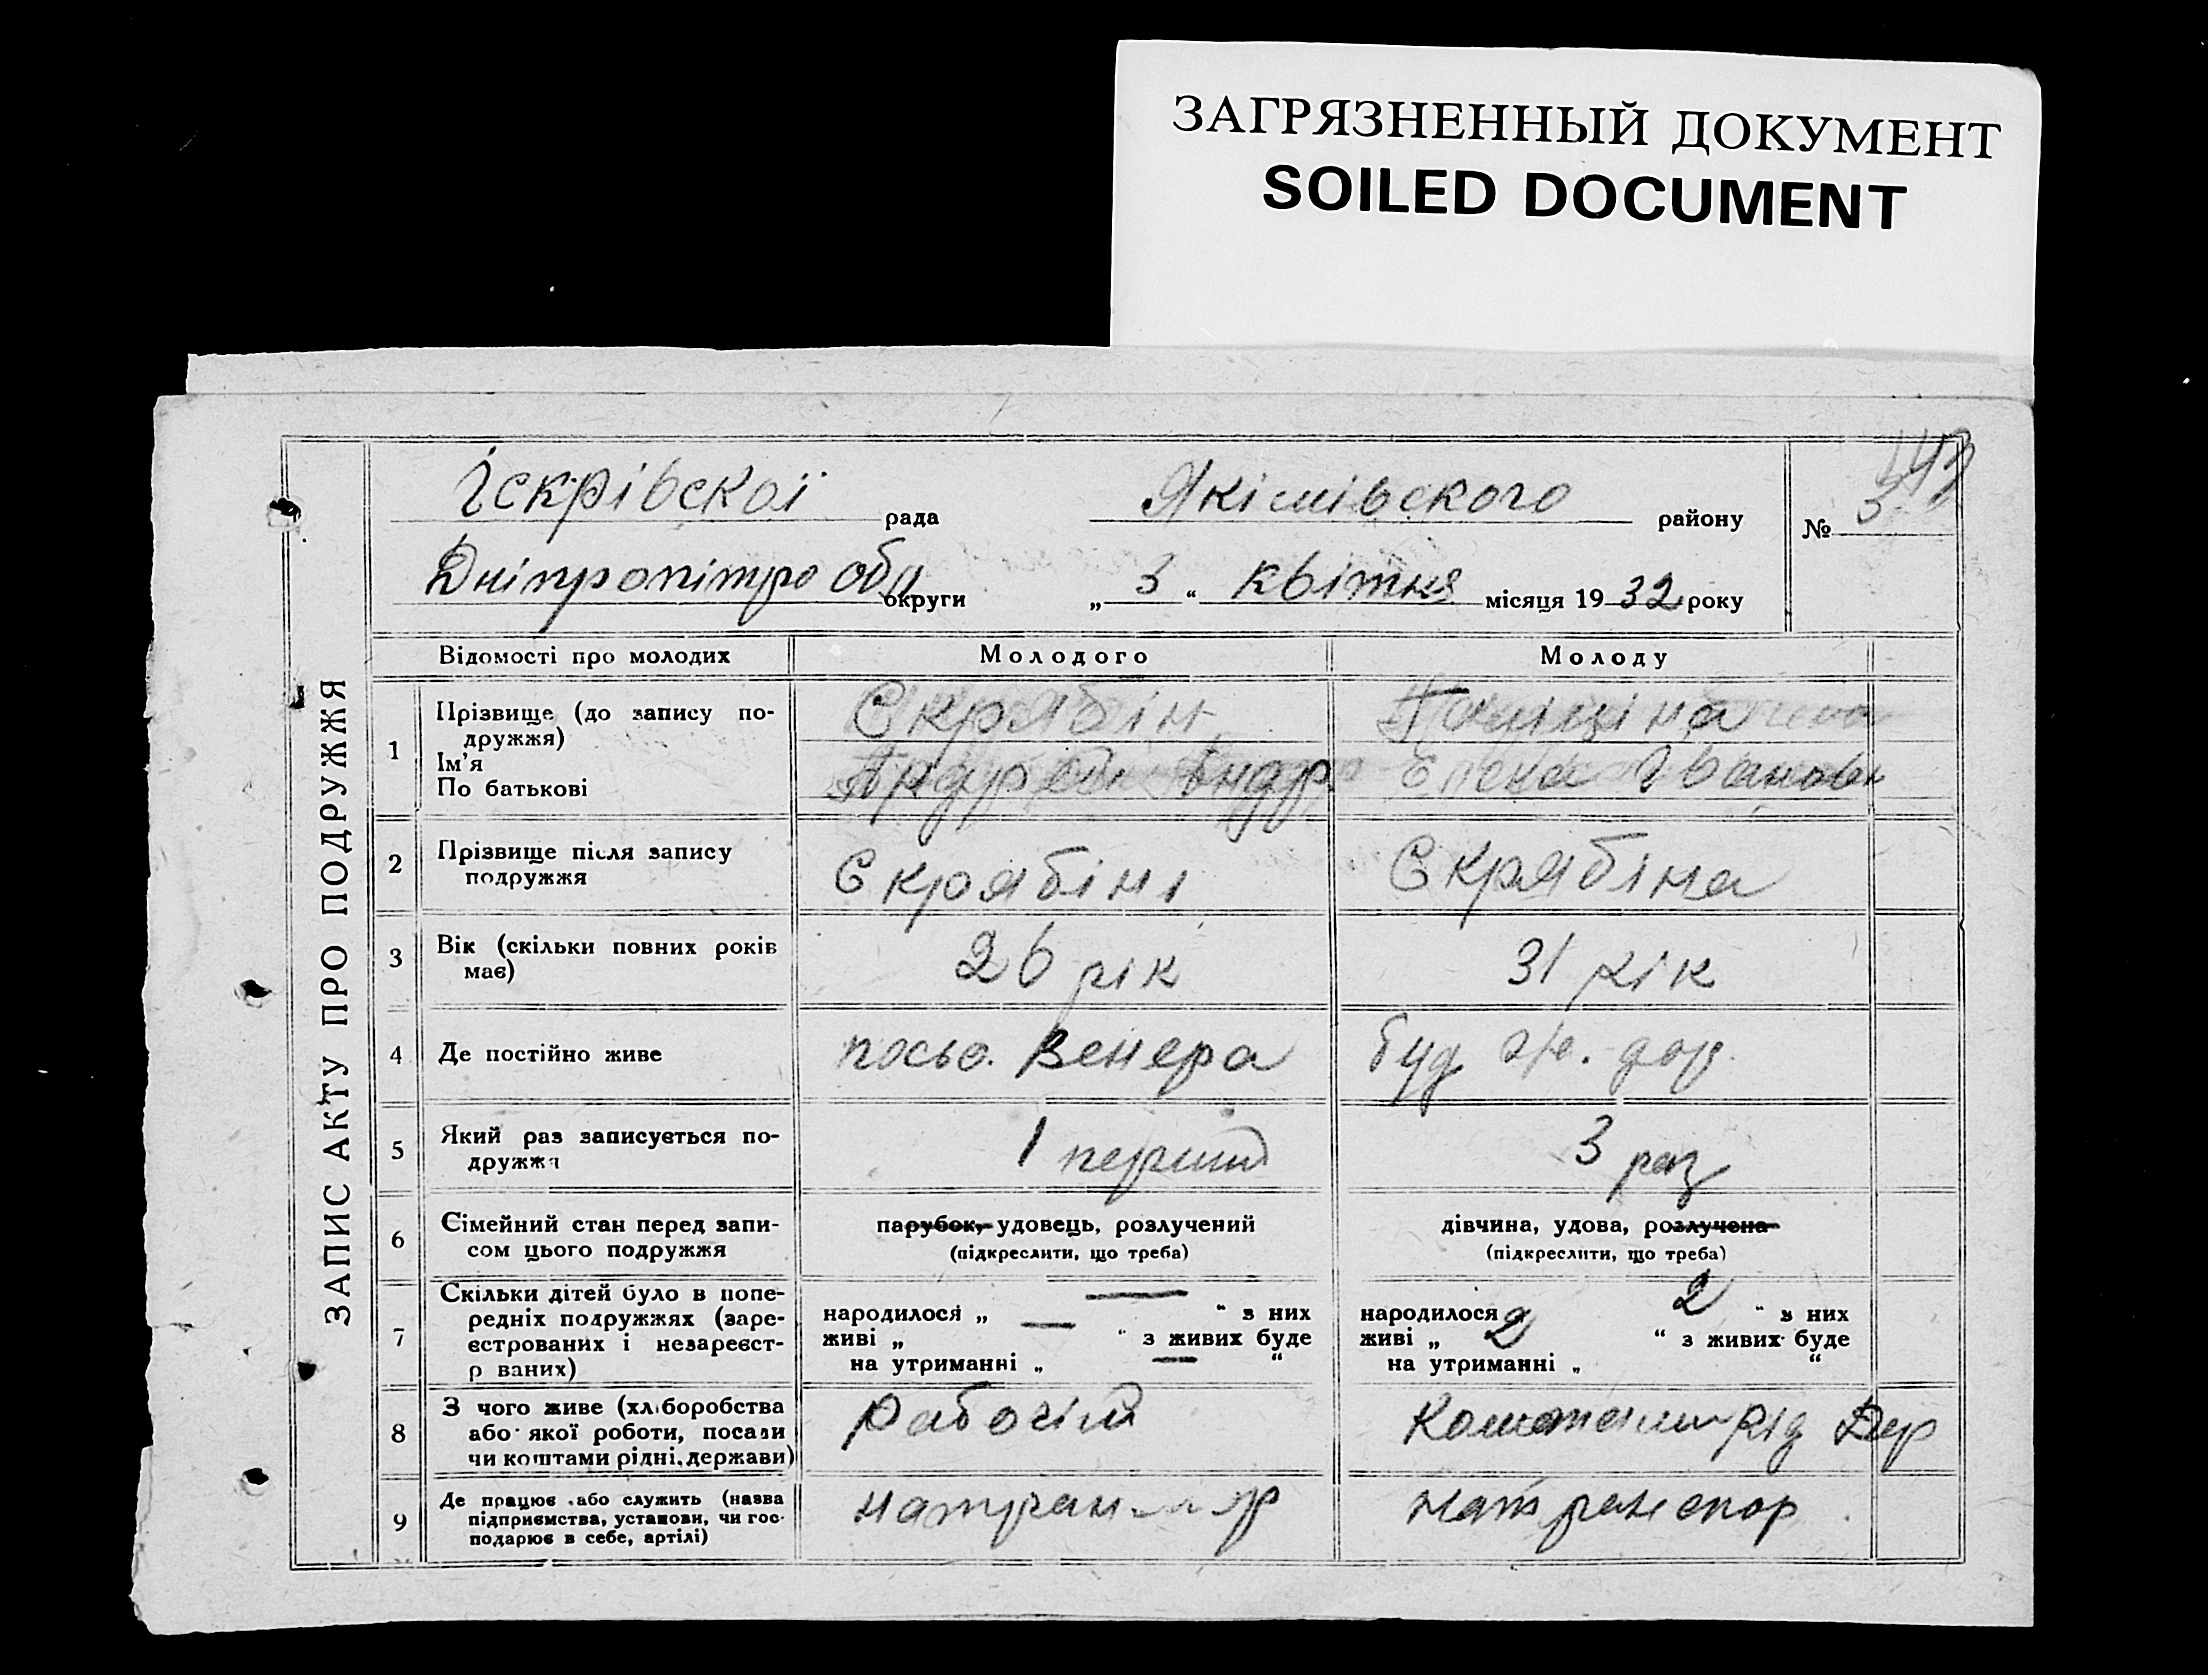 ЗАГРЯЗНЕННЫЙ ДОКУМЕНТ
SOILED DOCUMENT
ЗАПИС АКТУ ПРО ПОДРУЖЖЯ
Іскрівскої рада Якімівского району № 3
Дніпропітро обл округи „ 3 “ квітня місяця 1932 року
Відомості про молодих Молодого Молоду
1 Прізвище (до запису по-
дружжя)
Ім'я
По батькові
Скрябін
Андрей Андр Елена Іванов
2 Прізвище після запису
подружжя
Скрябіні Скрябіна
3 Вік (скільки повних років
має)
26 рік 31 рік
4 Де постійно живе Венера буд
5 Який раз записується по-
дружжя
1 перший 3 раз
6 Сімейний стан перед запи-
сом цього подружжя
парубок, удовець, розлучений
(підкреслити, що треба)
дівчина, удова, розлучена
(підкреслити, що треба)
7 Скільки дітей було в попе-
редніх подружжях (заре-
єстрованих і незареєст-
р ваних)
народилося „ — “ з них
живі „ — “ з живих буде
на утриманні „ — “
народилося 2 “ з них
живі „ 2 “ з живих буде
на утриманні „ “
8 З чого живе (хліборобства
або якої роботи, посади
чи коштами рідні, держави)
рабочій рід Дер
9 Де працює або служить (назва
підприємства, установи, чи гос-
подарює в себе, артілі)